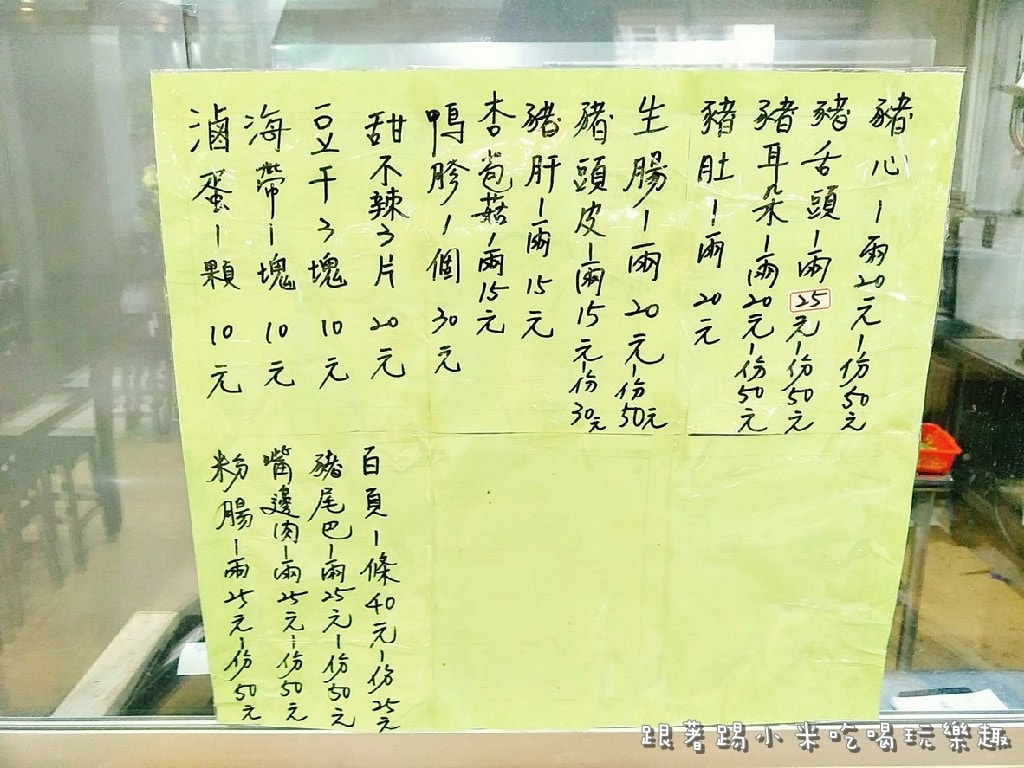 豬心一兩20元一份50元
豬舌頭一兩25元一份50元
豬耳朵一兩20元一份50元
豬肚1兩20元
生腸一兩20元一份50元
豬頭皮一兩15元一份30元
豬肝一兩15元
杏苞菇一兩15元
鴨胗1個30元
甜不辣3片20元
豆干3塊10元
海帶1塊10元
滷蛋一顆10元
百頁一條40元一份25元
豬尾巴一兩25元一份50元
嘴邊肉一兩25元一份50元
粉腸一兩25元一份50元
跟著踢小米吃喝玩樂趣